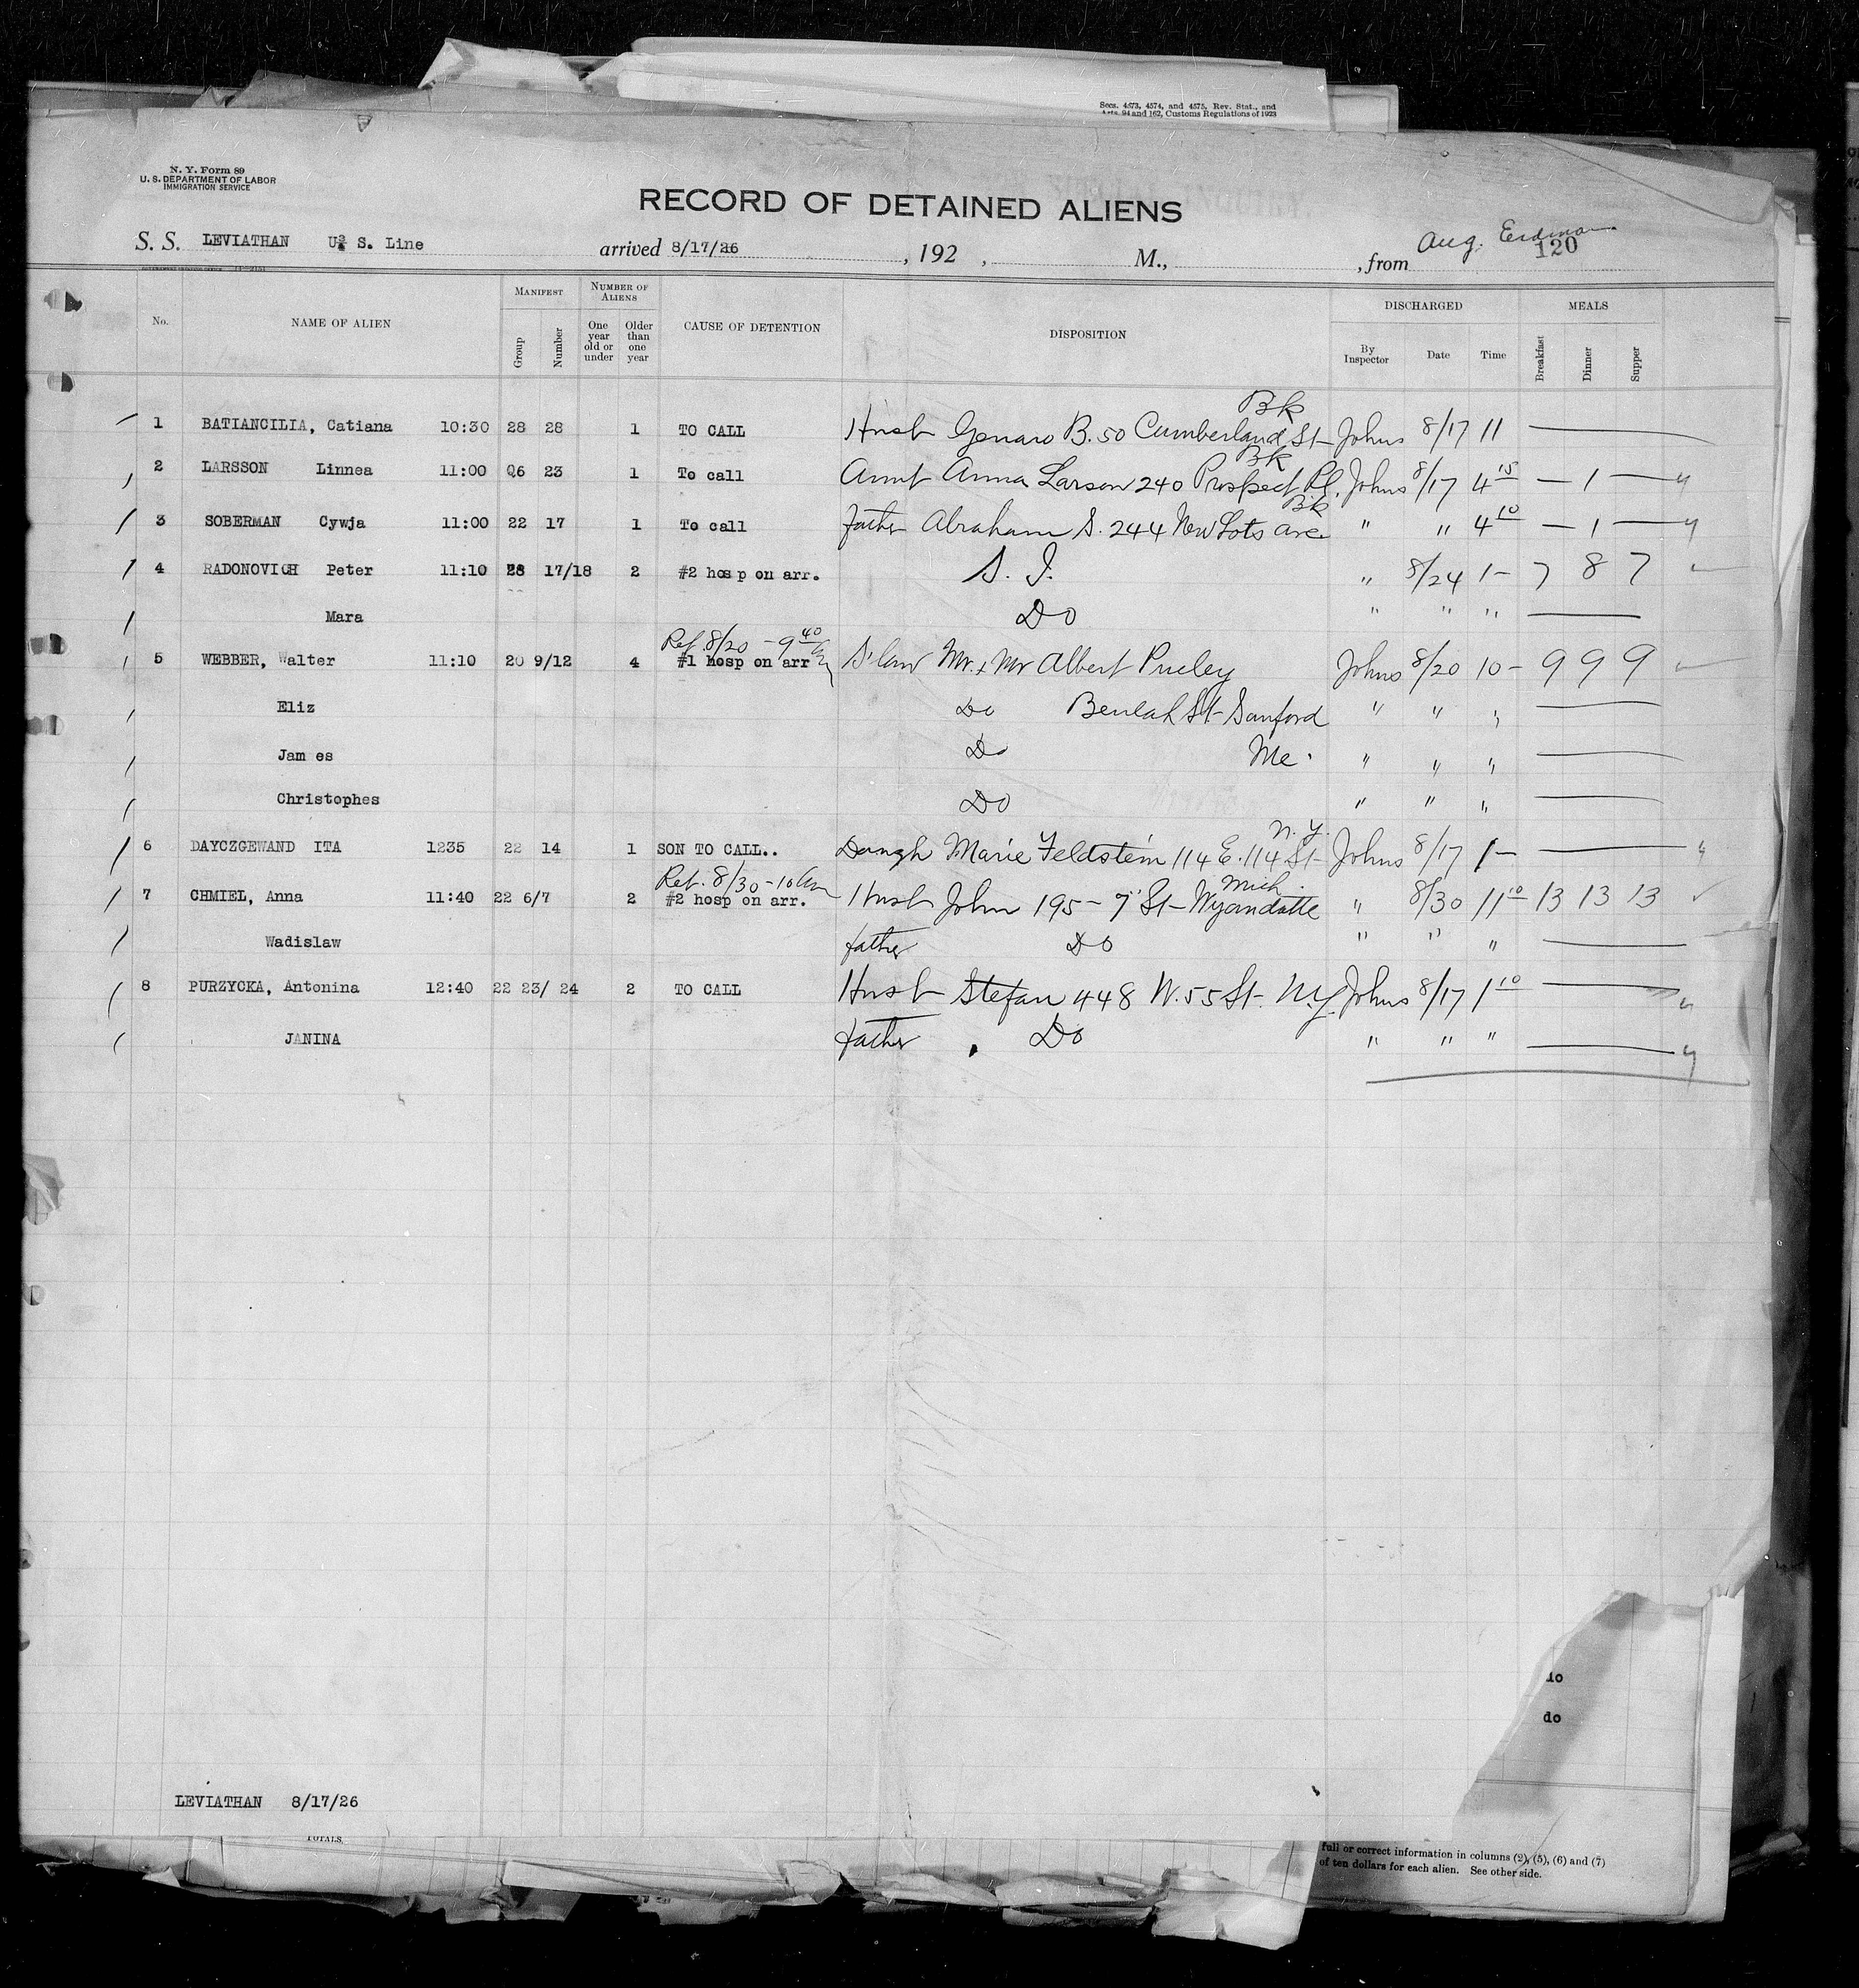 Secs. 4573, 4574, and 4575, Rev. Stat., and
Arts. 94 and 162, Customs Regulations of 1923
N. Y. Form 89
U. S. DEPARTMENT OF LABOR
IMMIGRATION SERVICE
RECORD OF DETAINED ALIENS
S. S. LEVIATHAN U. S. Line arrived 8/17/26 , 192 , M., , from Aug. 120
No. NAME OF ALIEN MANIFEST Group Number NUMBER OF ALIENS One year old or under Older than one year CAUSE OF DETENTION DISPOSITION DISCHARGED By Inspector Date Time MEALS Breakfast Dinner Supper
Bk
1 BATIANCILIA, Catiana 10:30 28 28 1 TO CALL Husb Genaro B. 50 Cumberland St- Johns 8/17 11
Bk
2 LARSSON Linnea 11:00 Q6 23 1 To call Aunt Anna Larson 240 Prospect Pl. Johns 8/17 4 15 — 1 —
Bk
3 SOBERMAN Cywja 11:00 22 17 1 To call father Abraham S. 244 New Lots Ave. " " 4 10 — 1 —
4 RADONOVICH Peter 11:10 28 17/18 2 #2 hosp on arr. S. I. " 8/24 1- 7 8 7
Mara Do " " "
Ret. 8/20 - 9 40
5 WEBBER, Walter 11:10 20 9/12 4 #1 hosp on arr S'law Mr. & Mr Albert Johns 8/20 10 - 9 9 9
Eliz Do Beulah St- Sanford " " "
Jam es Do Me. " " "
Christophes Do " " "
N.Y.
6 DAYCZGEWAND ITA 1235 22 14 1 SON TO CALL.. Daugh Marie Feldstein 114 E. 114 St- Johns 8/17 1-
Ret. 8/30 - 10 am Mich.
7 CHMIEL, Anna 11:40 22 6/7 2 #2 hosp on arr. Husb John 195 - 7" St- Wyandotte " 8/30 11 10 13 13 13
Wadislaw father Do " " "
8 PURZYCKA, Antonina 12:40 22 23/ 24 2 TO CALL Husb Stefan 448 W. 55 St- N.Y. Johns 8/17 1 10
JANINA father Do " " "
do
do
LEVIATHAN 8/17/26
TOTALS
full or correct information in columns (2), (5), (6) and (7)
of ten dollars for each alien. See other side.